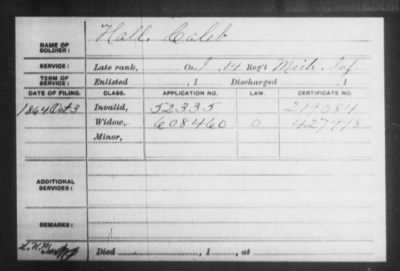 NAME OF SOLDIER: Hall, Caleb
SERVICE: Late rank, Co. I, 14 Reg't Mich. Inf.
TERM OF SERVICE: Enlisted , 1 Discharged , 1
DATE OF FILING. CLASS. APPLICATION NO. LAW. CERTIFICATE NO.
1864 Oct 3 Invalid, 52335 217084
Widow, 608460 0 427998
Minor,
ADDITIONAL SERVICES:
REMARKS:
Died , 1 , at